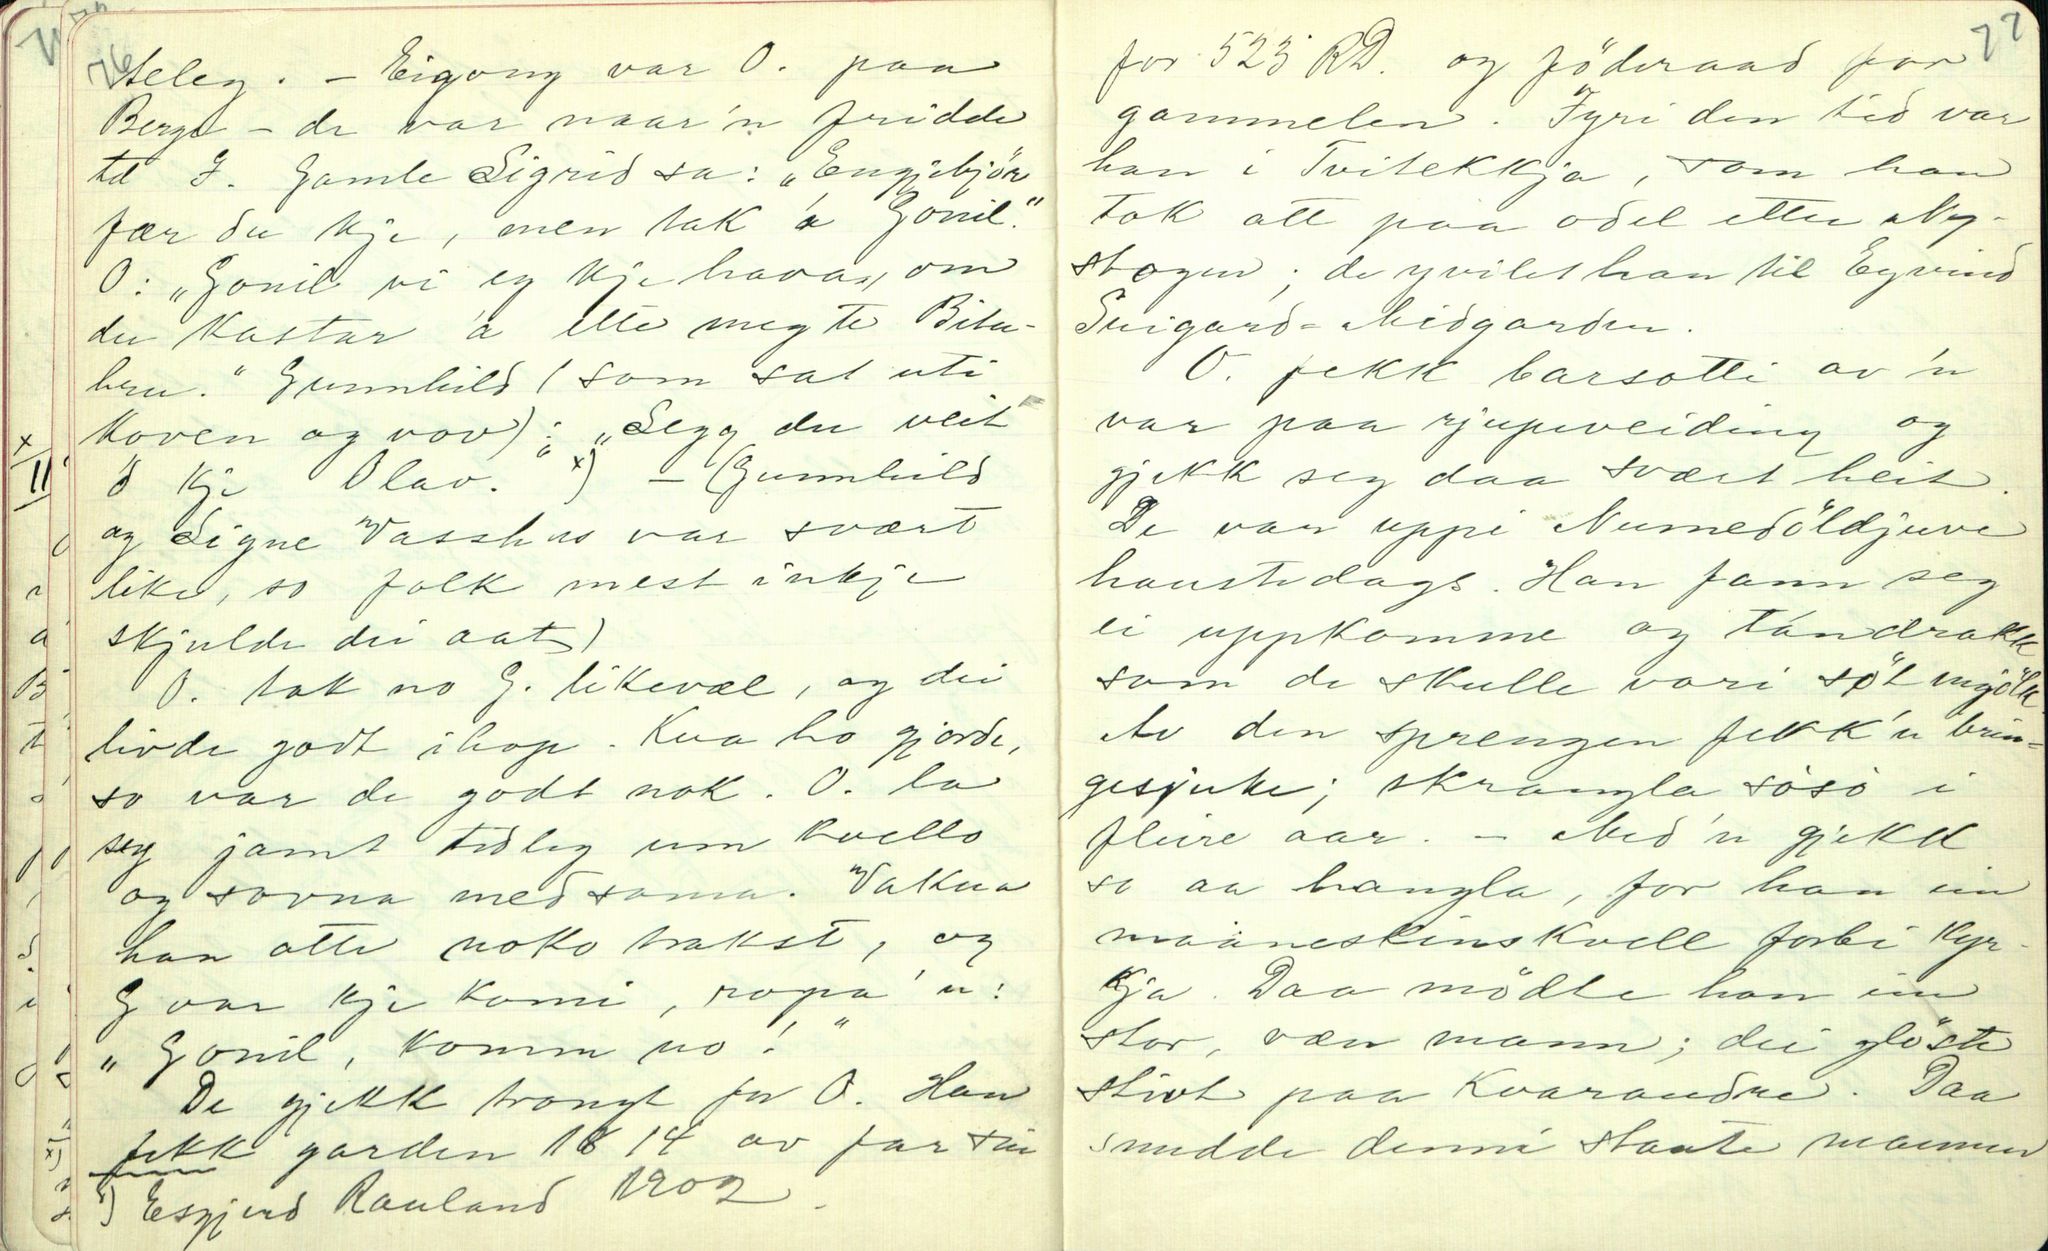 76
teleg. – Eigong var O. paa
Berge – de var naar'n fridde
td I. Gamle Sigrid sa: „Engjebjör
fær du kje, men tak 'a Gonil."
O: „Gonil vi eg kje hava, om
du kastar 'a ette meg te Bitu-
bru." Gunnhild (som sat uti
koven og vov): „Segg du veit
d kje Olav. x) – (Gunnhild
og Signe Vasshus var svært
like, so folk mest inkje
skjulde dei aat)
O. tok no G. likevæl, og dei
livde godt ihop. Kva ho gjorde,
so var de godt nok. O. la
seg jamt tidleg um kvello
og sovna med sama. Vakna
han atte noko trakst, og
G var kje komi, ropa 'n:
„Gonil, komm no!"
De gjekk trongt for O. Han
fekk garden 1814 av far sin
x) Esgjerd Rauland 1902.
77
for 523 RD. og föderaad for
gammelen. Fyri den tid var
han i Tvitekkja, som han
tok att paa odel etter Ny-
stogen; de yvilet han til Eyvind
Suigard-Midgarden.
O. fekk barsotti av 'n
var paa rjupeveiding og
gjekk seg daa svært heit.
De var uppi Numedöldjuve
haustedags. Han fann seg
ei uppkomme og tándrakk
som de skulle vori söt mjölk.
Av den sprengen fekk'n brin-
gesjuke; skrangla sòsò i
fleire aar. – Med 'n gjekk
so aa hangla, for han ein
maaneskinskvell forbi kyr-
kja. Daa mödte han ein
stor, væn mann; dei glöste
stivt paa kvarandre. Daa
snudde denni staute mannen